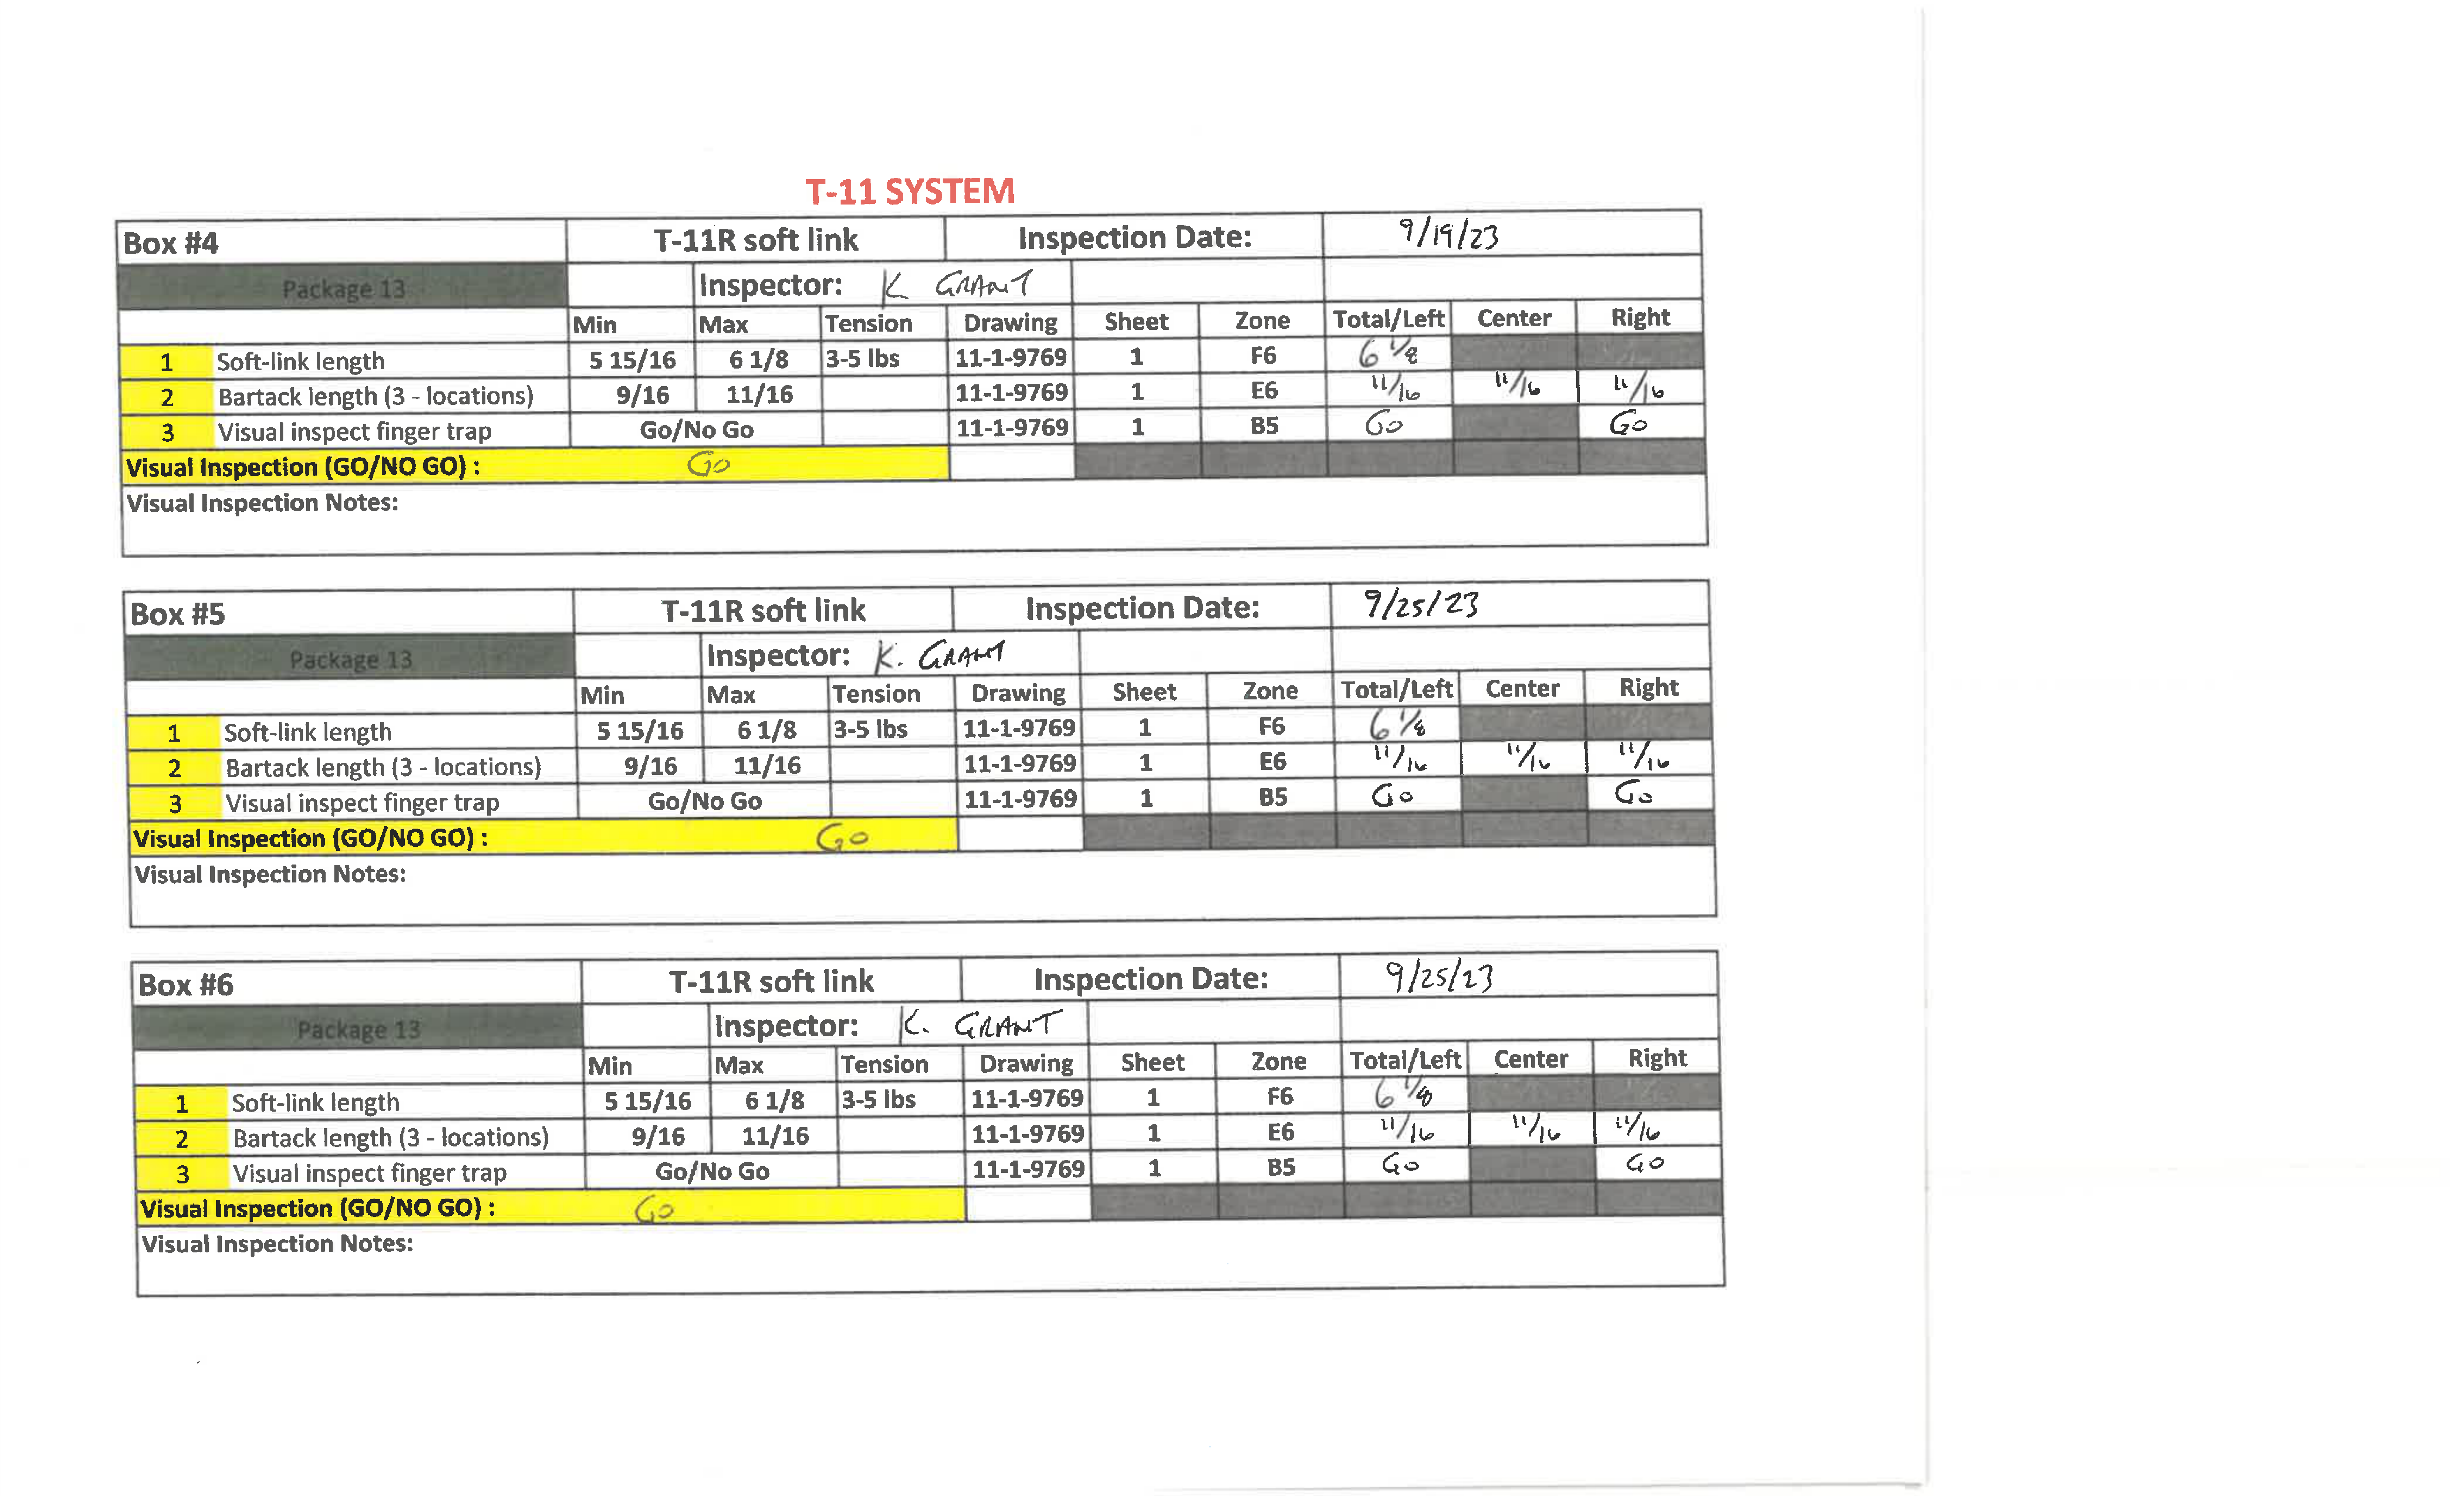 T-11 SYSTEM
Box #4 T-11R soft link Inspection Date: 9/19/23
Package 13 Inspector: K GRANT
Min Max Tension Drawing Sheet Zone Total/Left Center Right
1 Soft-link length 5 15/16 6 1/8 3-5 lbs 11-1-9769 1 F6 6 1/8
2 Bartack length (3 - locations) 9/16 11/16 11-1-9769 1 E6 11/16 11/16 11/16
3 Visual inspect finger trap Go/No Go 11-1-9769 1 B5 Go Go
Visual Inspection (GO/NO GO) : Go
Visual Inspection Notes:
Box #5 T-11R soft link Inspection Date: 9/25/23
Package 13 Inspector: K. GRANT
Min Max Tension Drawing Sheet Zone Total/Left Center Right
1 Soft-link length 5 15/16 6 1/8 3-5 lbs 11-1-9769 1 F6 6 1/8
2 Bartack length (3 - locations) 9/16 11/16 11-1-9769 1 E6 11/16 11/16 11/16
3 Visual inspect finger trap Go/No Go 11-1-9769 1 B5 Go Go
Visual Inspection (GO/NO GO) : Go
Visual Inspection Notes:
Box #6 T-11R soft link Inspection Date: 9/25/23
Package 13 Inspector: K. GRANT
Min Max Tension Drawing Sheet Zone Total/Left Center Right
1 Soft-link length 5 15/16 6 1/8 3-5 lbs 11-1-9769 1 F6 6 1/8
2 Bartack length (3 - locations) 9/16 11/16 11-1-9769 1 E6 11/16 11/16 11/16
3 Visual inspect finger trap Go/No Go 11-1-9769 1 B5 Go Go
Visual Inspection (GO/NO GO) : Go
Visual Inspection Notes: